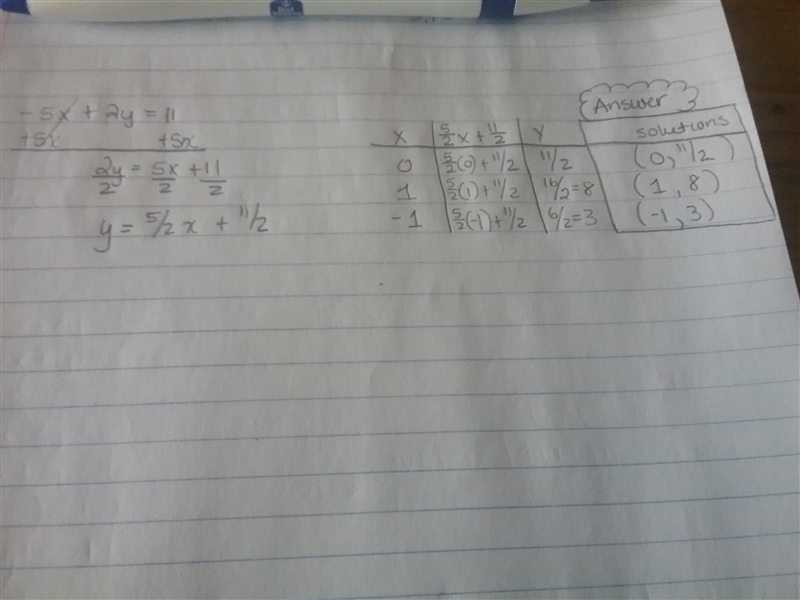 -5x + 2y = 11
+5x +5x
2y/2 = 5x/2 + 11/2
y = 5/2 x + 11/2
Answer
x 5/2x + 11/2 y solutions
0 5/2(0) + 11/2 11/2 (0, 11/2)
1 5/2(1) + 11/2 16/2 = 8 (1, 8)
-1 5/2(-1) + 11/2 6/2 = 3 (-1, 3)